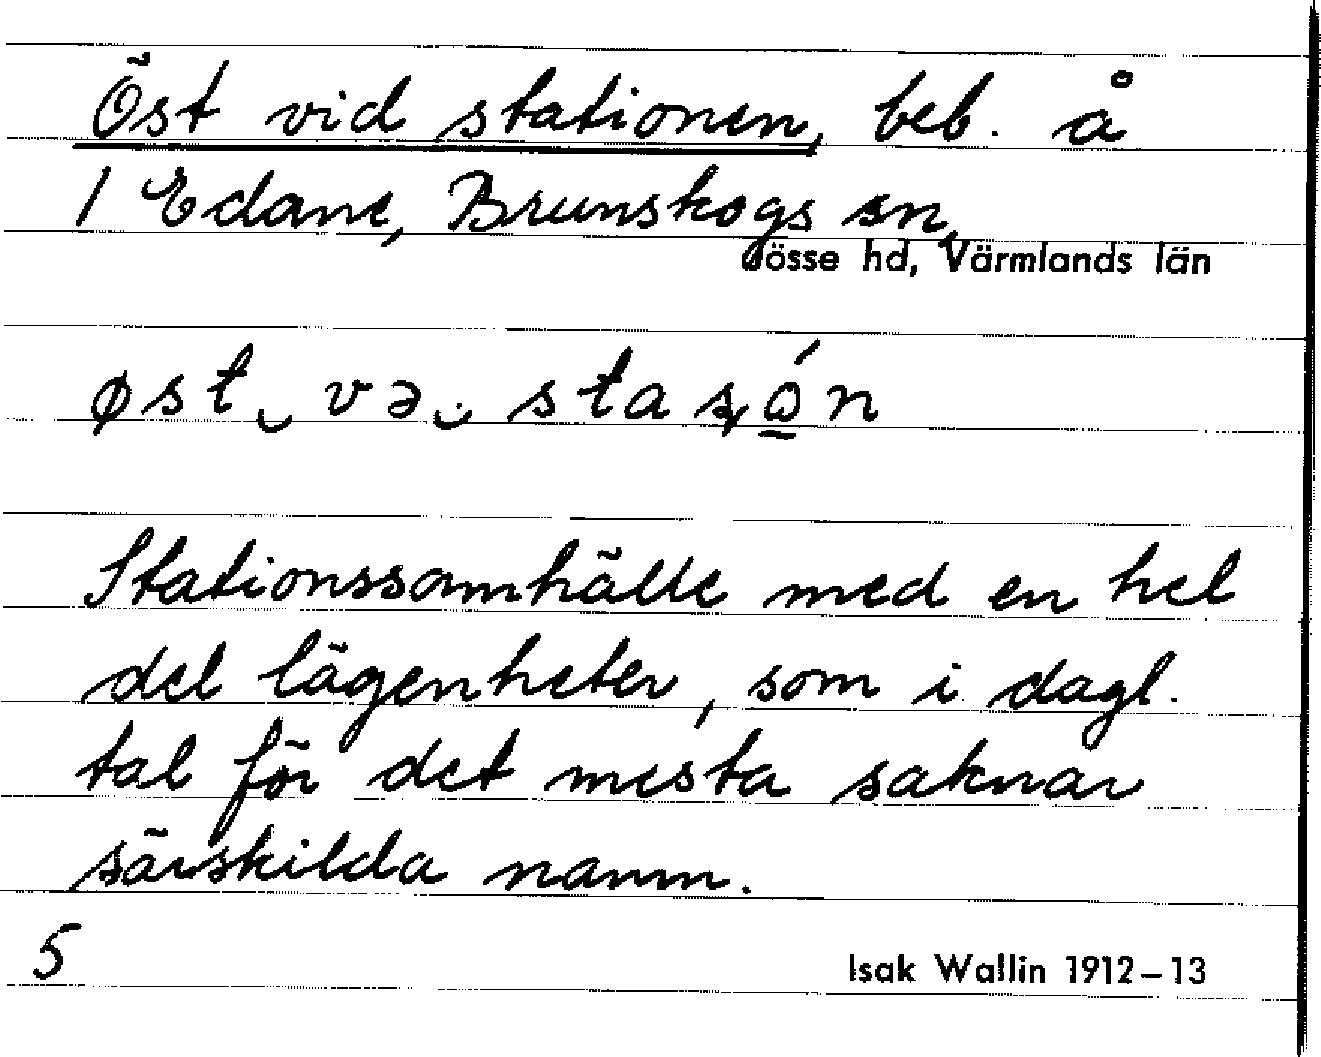 Öst vid stationen, beb. å
1 Edane, Brunskogs sn,
Jösse hd, Värmlands län
øst‿ və‿ stasǫ́n
Stationssamhälle med en hel
del lägenheter, som i dagl.
tal för det mesta saknar
särskilda namn.
5 Isak Wallin 1912–13